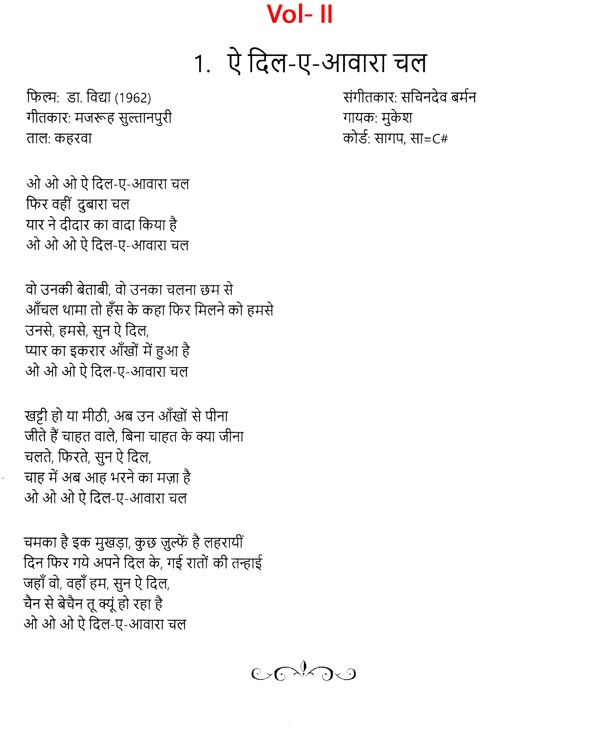 Vol- II
1. ऐ दिल-ए-आवारा चल
फिल्म: डा. विद्या (1962) संगीतकार: सचिनदेव बर्मन
गीतकार: मजरूह सुल्तानपुरी गायक: मुकेश
ताल: कहरवा कोर्ड: सागप, सा=C#
ओ ओ ओ ऐ दिल-ए-आवारा चल
फिर वहीं दुबारा चल
यार ने दीदार का वादा किया है
ओ ओ ओ ऐ दिल-ए-आवारा चल
वो उनकी बेताबी, वो उनका चलना छम से
आँचल थामा तो हँस के कहा फिर मिलने को हमसे
उनसे, हमसे, सुन ऐ दिल,
प्यार का इकरार आँखों में हुआ है
ओ ओ ओ ऐ दिल-ए-आवारा चल
खट्टी हो या मीठी, अब उन आँखों से पीना
जीते हैं चाहत वाले, बिना चाहत के क्या जीना
चलते, फिरते, सुन ऐ दिल,
चाह में अब आह भरने का मज़ा है
ओ ओ ओ ऐ दिल-ए-आवारा चल
चमका है इक मुखड़ा, कुछ ज़ुल्फें है लहरायीं
दिन फिर गये अपने दिल के, गई रातों की तन्हाई
जहाँ वो, वहाँ हम, सुन ऐ दिल,
चैन से बेचैन तू क्यूं हो रहा है
ओ ओ ओ ऐ दिल-ए-आवारा चल